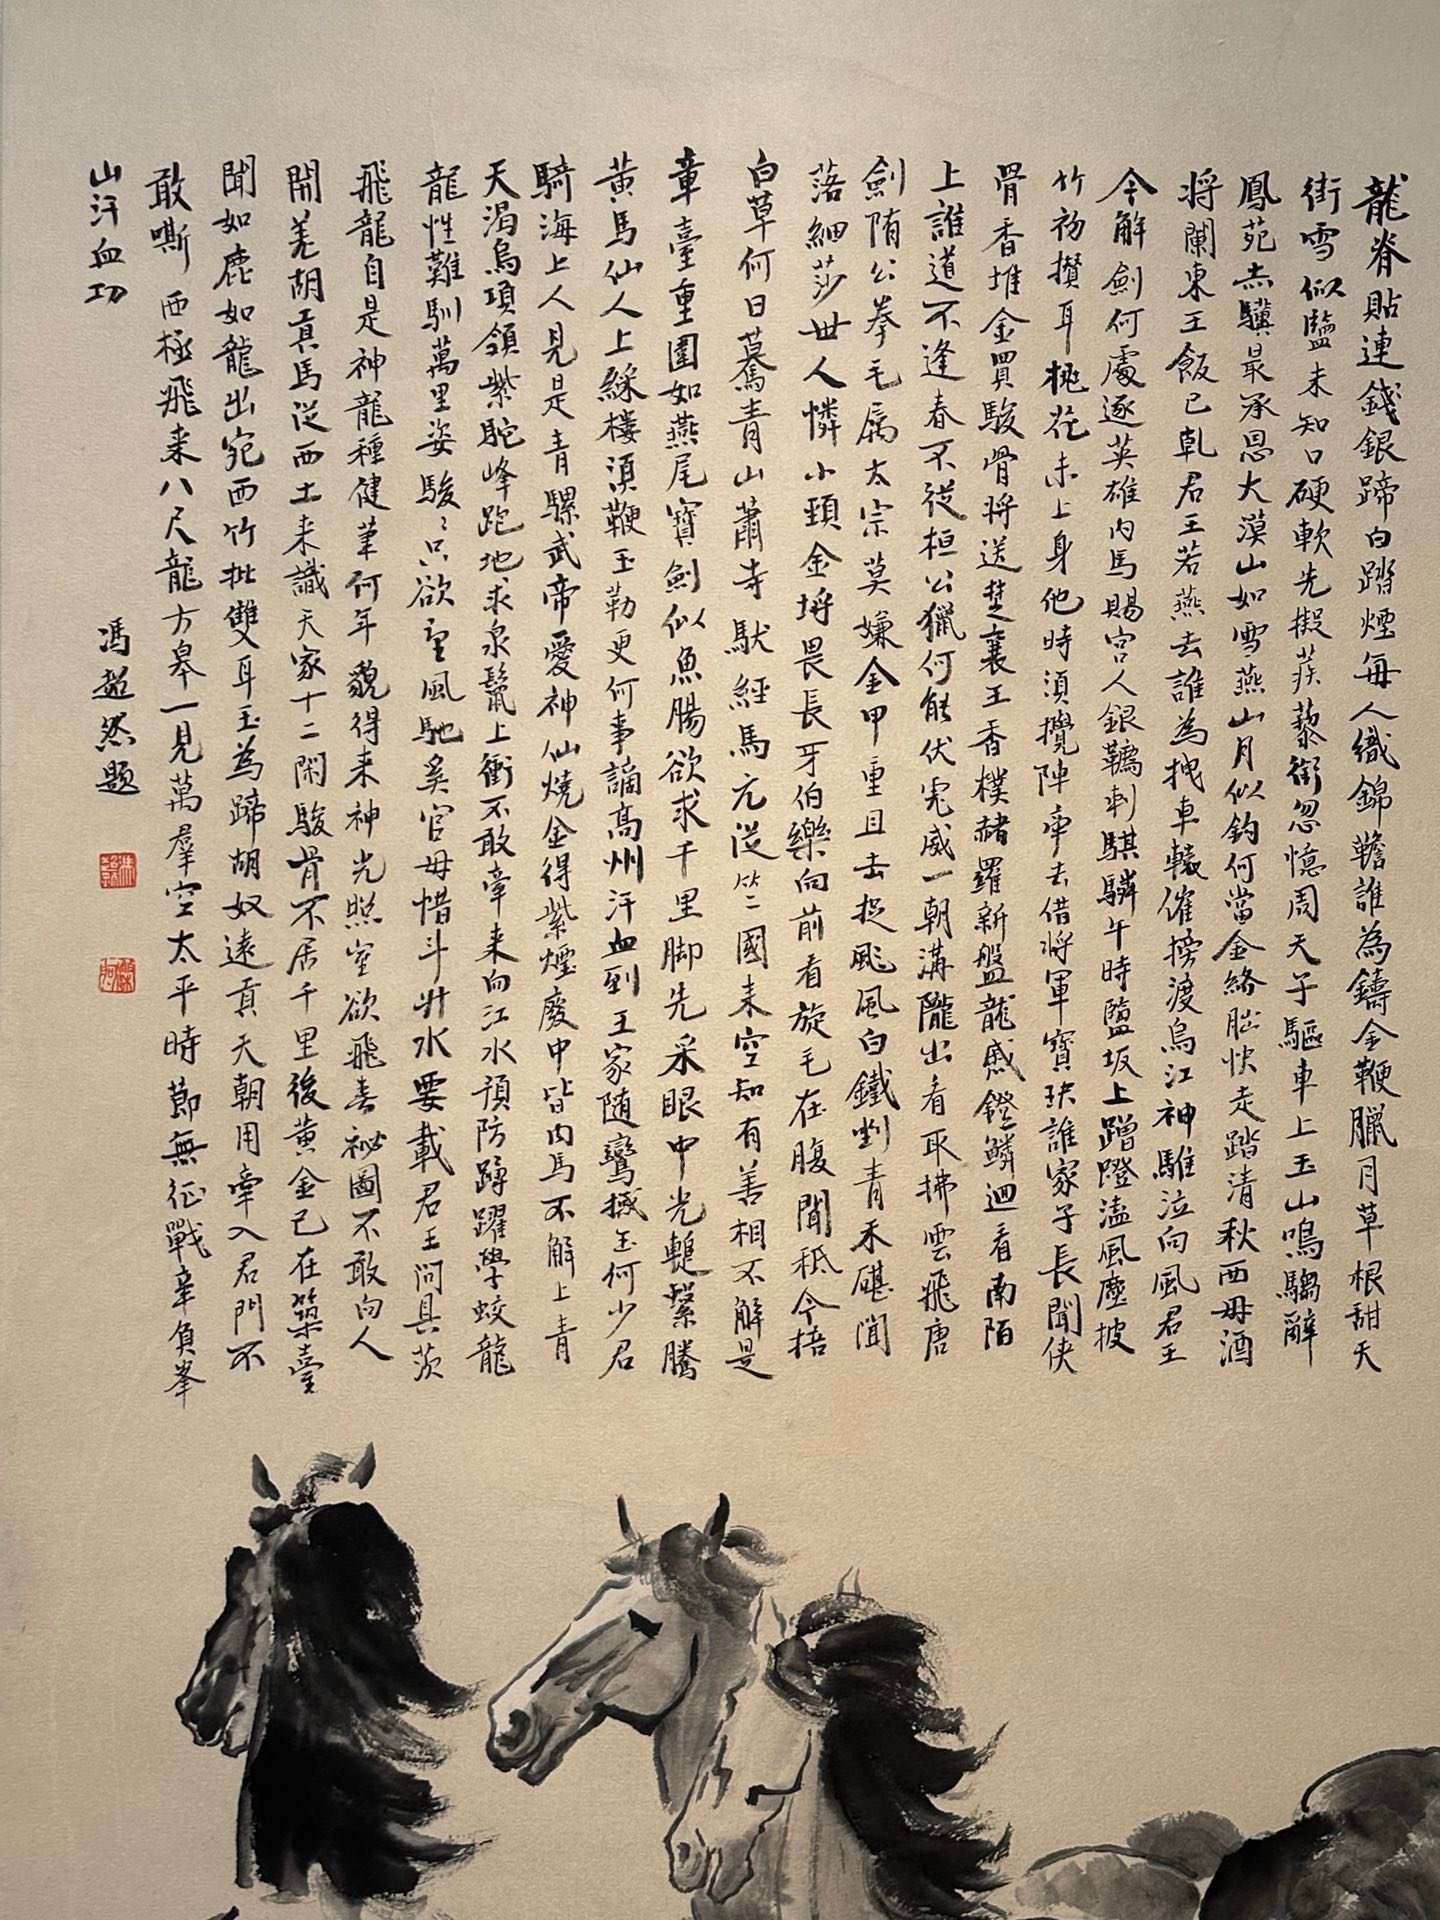 龍脊貼連錢銀蹄白踏煙無人織錦韂誰為鑄金鞭臘月草根甜天
街雪似鹽未知口硬軟先擬蒺藜銜忽憶周天子驅車上玉山鳴騶辭
鳳苑赤驥最承恩大漠山如雪燕山月似鉤何當金絡腦快走踏清秋西母酒
將闌東王飯已乾君王若燕去誰為拽車轅催榜渡烏江神騅泣向風君王
今解劍何處逐英雄內馬賜宮人銀韉刺騏驎午時鹽坂上蹭蹬溘風塵披
竹初攢耳桃花未上身他時須攪陣牽去借將軍寶玦誰家子長聞俠
骨香堆金買駿骨將送楚襄王香襆赭羅新盤龍蹙鐙鱗迴看南陌
上誰道不逢春不從桓公獵何能伏虎威一朝溝隴出看取拂雲飛唐
劍隋公拳毛屬太宗莫嫌金甲重且去捉飈風白鐵剉青禾碪間
落細莎世人憐小頸金埒畏長牙伯樂向前看旋毛在腹間秪今掊
白草何日驀青山蕭寺馱經馬元從竺國來空知有善相不解是
章臺重圍如燕尾寶劍似魚腸欲求千里腳先采眼中光蹔繫騰
黃馬仙人上綵樓須鞭玉勒吏何事謫高州汗血到王家隨鸞撼玉何少君
騎海上人見是青騾武帝愛神仙燒金得紫煙廄中皆肉馬不解上青
天渴烏項領紫駝峰跑地求泉鬣上衝不敢牽來向江水預防踴躍學蛟龍
龍性難馴萬里姿駿〻只欲望風馳奚官毋惜斗升水要載君王問具茨
飛龍自是神龍種健筆何年貌得來神光照室欲飛去祕圖不敢向人
開羌胡真馬從西土來識天家十二閑駿骨不居千里後黃金已在築臺
聞如鹿如龍出宛西竹批雙耳玉為蹄胡奴遠貢天朝用牽入君門不
敢嘶西極飛來八尺龍方皋一見萬羣空太平時節無征戰辜負峯
山汗血功
馮超然題